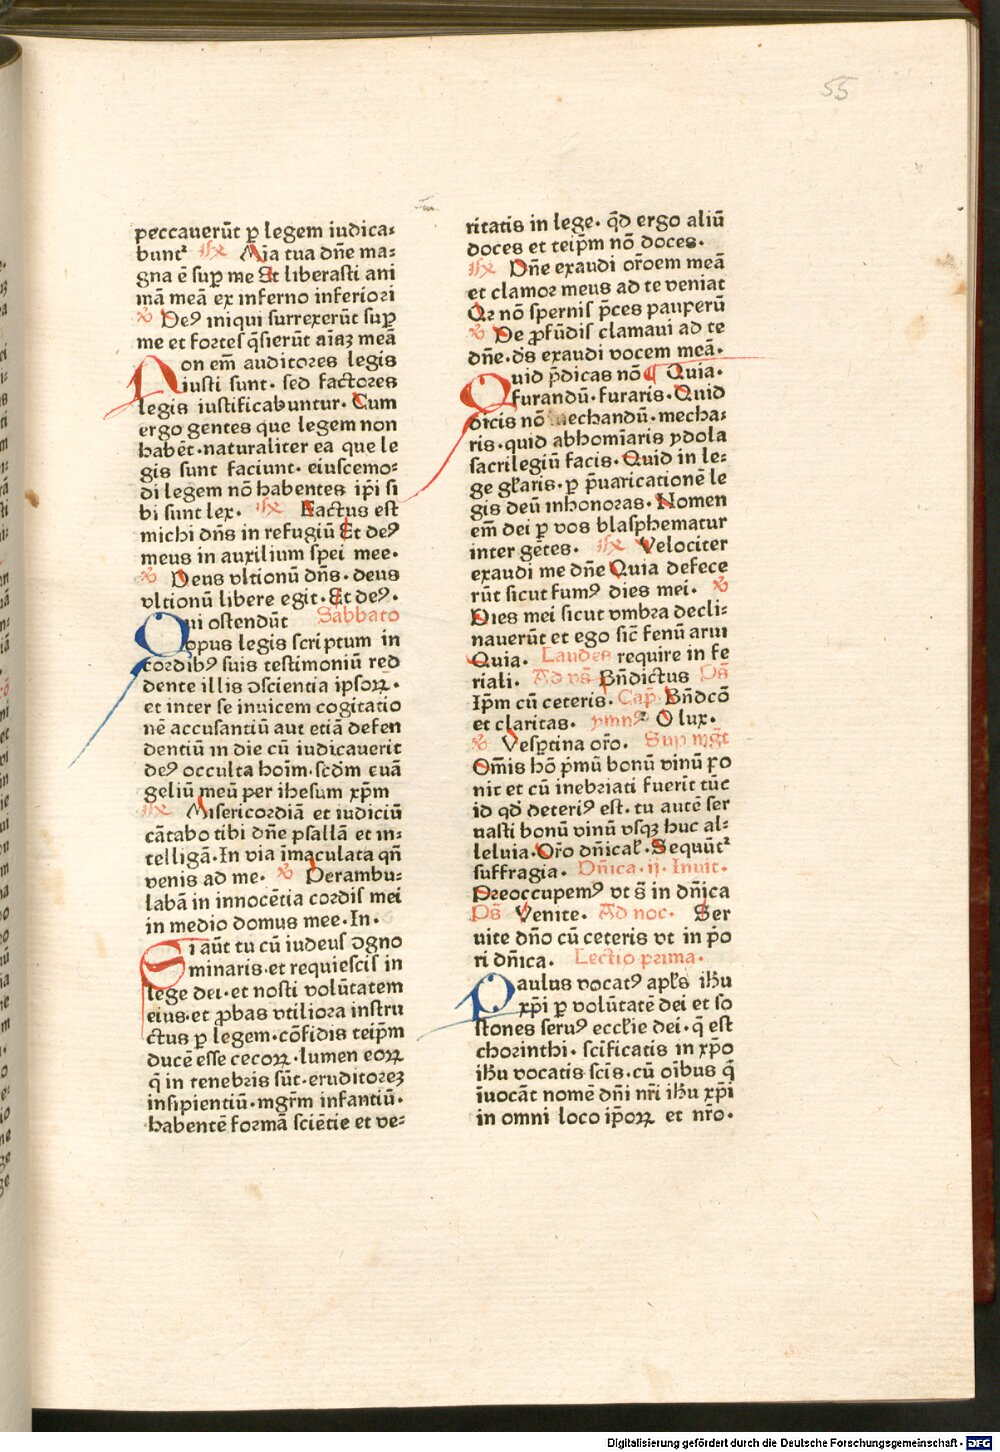 55
peccauerūt ꝑ legem iudica⸗
bunt᷑ ℟ Mīa tua dn̄e ma⸗
gna ē suꝑ me Et liberasti ani
mā meā ex inferno inferiori
℣ Deꝰ iniqui surrexerūt suꝑ
me et fortes q̄sierūt aīaʒ meā
Non em̄ auditores legis
iusti sunt· sed factores
legis iustificabuntur· Cum
ergo gentes que legem non
habēt·naturaliter ea que le
gis sunt faciunt· eiuscemo⸗
di legem nō habentes ip̄i si
bi sunt lex· ℟ Factus est
michi dn̄s in refugiū Et deꝰ
meus in auxilium spei mee·
℣ Deus vltionū dn̄s· deus
vltionū libere egit· Et deꝰ·
Qui ostendūt Sabbato
opus legis scriptum in
cordibꝰ suis testimoniū red
dente illis ꝯscientia ipsoꝝ·
et inter se inuicem cogitatio
nē accusantiū aut etiā defen
dentiū in die cū iudicauerit
deꝰ occulta hoīm·scd̄m euā
geliū meū per ihesum xp̄m
℟ Misericordiā et iudiciū
cātabo tibi dn̄e psallā et in⸗
telligā·In via īmaculata qn̄
venis ad me· ℣ Perambu⸗
labā in innocētia cordis mei
in medio domus mee·In·
Si aūt tu cū iudeus ꝯgno
minaris·et requiescis in
lege dei·et nosti volūtatem
eius·et ꝓbas vtiliora instru
ctus ꝑ legem·cōfidis teip̄m
ducē esse cecoꝝ·lumen eoꝝ
q̄ in tenebris sūt·eruditoreʒ
insipientiū·mgr̄m infantiū·
habentē formā sciētie et ve⸗
ritatis in lege· qd̄ ergo aliū
doces et teip̄m nō doces·
℟ Dn̄e exaudi or̄oem meā
et clamor meus ad te veniat
Qr nō spernis p̄ces pauperū
℣ De ꝓfūdis clamaui ad te
dn̄e·ds̄ exaudi vocem meā·
Quid p̄dicas nō ¶ Quia·
furandū·furaris·Quid
dicis nō mechandū·mecha⸗
ris·quid abhomīaris ydola
sacrilegiū facis·Quid in le⸗
ge gl̄aris·ꝑ p̄uaricationē le
gis deū inhonoras·Nomen
em̄ dei ꝑ vos blasphematur
inter gētes· ℟ Velociter
exaudi me dn̄e Quia defece
rūt sicut fumꝰ dies mei· ℣
Dies mei sicut vmbra decli⸗
nauerūt et ego sic̄ fenū arui
Quia· Laudes require in fe
riali· Ad vs̄ Bn̄dictus Ps̄
Ip̄m cū ceteris·Cap̄ Bn̄dcō
et claritas· ymnꝰ O lux·
℣ Vesꝑtina or̄o· Suꝑ mgt̄
Om̄is hō p̄mū bonū vinū po
nit et cū inebriati fuerīt tūc
id qd̄ deteriꝰ est·tu autē ser
uasti bonū vinū vsqʒ huc al⸗
leluia·Or̄o dn̄ical̄·Sequūt᷑
suffragia· Dn̄ica·ij·Inuit·
Preoccupemꝰ vt s̄ in dn̄ica
Ps̄ Venite· Ad noc· Ser
uite dn̄o cū ceteris vt in p̄o
ri dn̄ica· Lectio prima·
Paulus vocatꝰ apl̄s ih̄u
xp̄i ꝑ volūtatē dei et so
stones seruꝰ eccl̄ie dei·q̄ est
chorinthi·scīficatis in xp̄o
ih̄u vocatis scīs·cū oībus q̄
īuocāt nomē dn̄i nr̄i ih̄u xp̄i
in omni loco ip̄oꝝ et nr̄o·
Digitalisierung gefördert durch die Deutsche Forschungsgemeinschaft · DFG